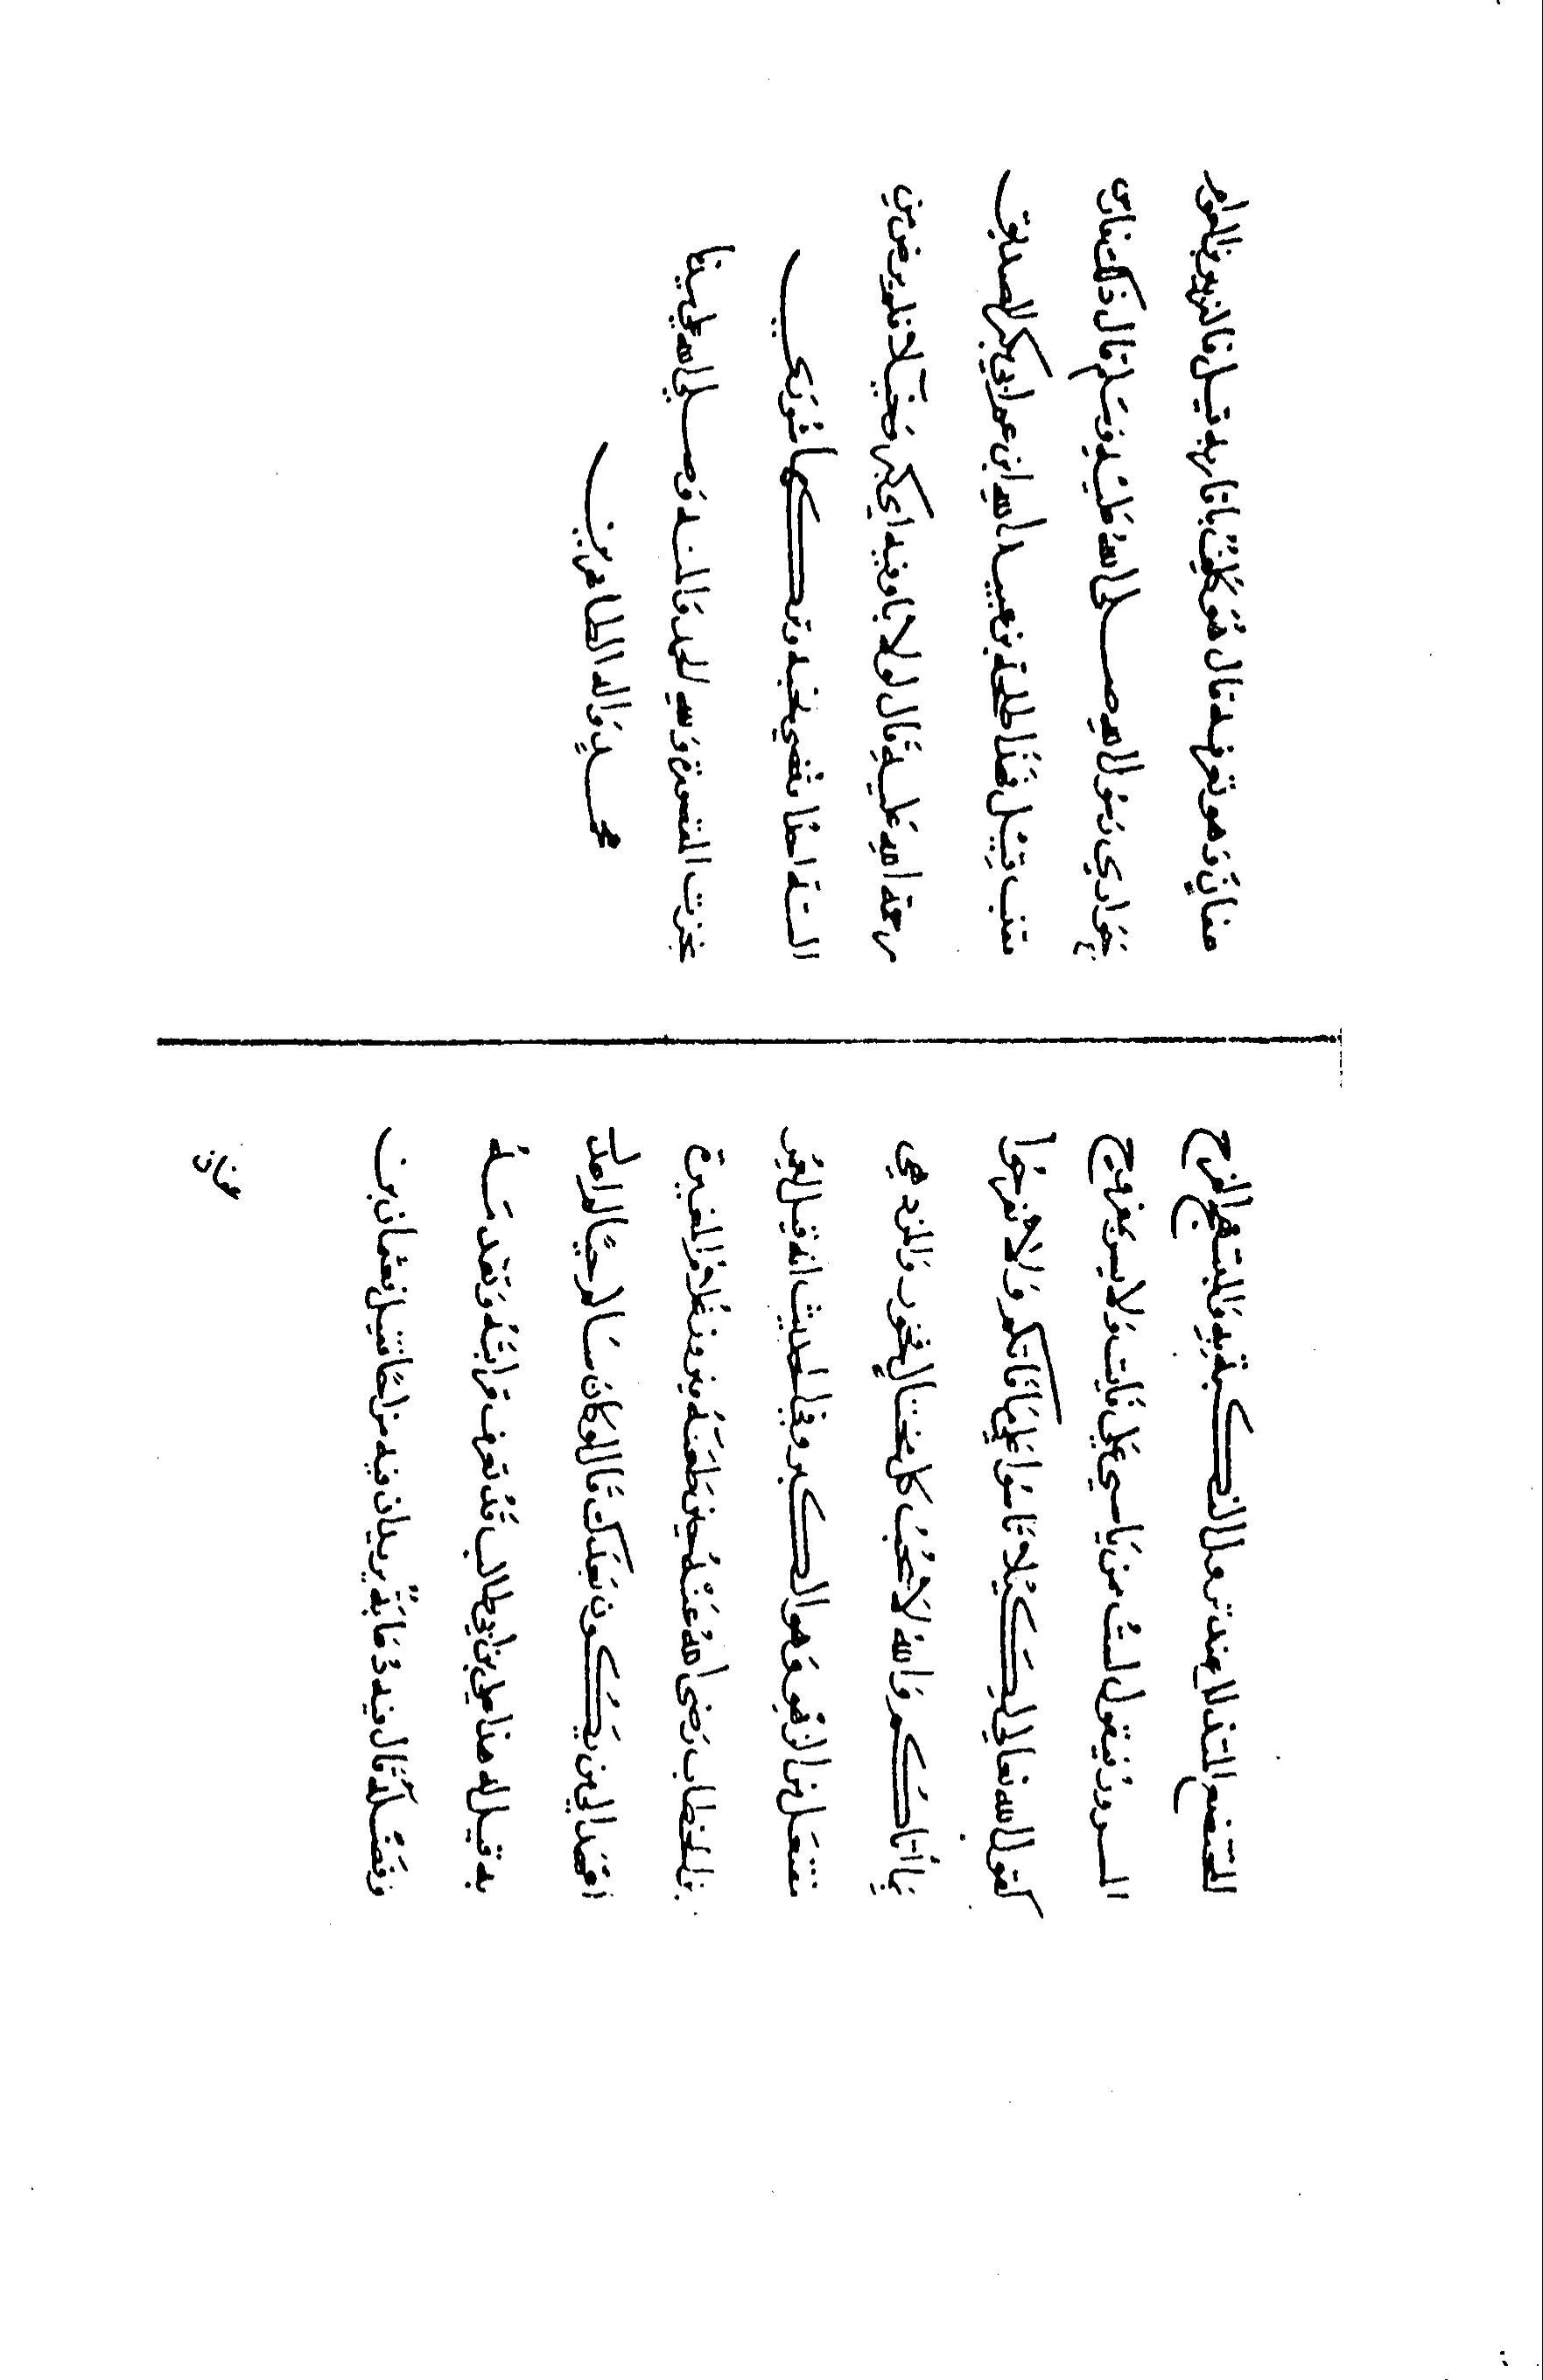 المتخضع المتذلل عند نزول النكبة به والمبتهج الفرح
السرور فيقول لست من ياسى على فايت ولا يسر بمفروح
كقول الله تعالى لكيلا تاسوا على ما فاتكم ولا تفرحوا
بما اتاكم والله لا يحب كل مختال فخور والمزدهي
مفتعل من الزهو وهو الكبر وفي الحديث انه قيل لعمر
بن الخطاب رضى الله عنه حين طعنه فيروز غلام المغيرة
اعهد الى من يكون بعدك قال لو كان سالم حيا لم اعدل
به قيل له هذا علي بن ابي طالب قد تعرف قرابته وتقدمه
وفضله قال فيه دعابة يريد ان فيه مزاحا قيل فعثمان بن
عفان
عفان وهو تعرفه قال هو كلف باقاربه قيل فالزبير بن العوام
حواري رسول الله صلى الله عليه وسلم قال ذاك فارس
مقنب قيل فهذا طلحة بن عبيد الله ابن عم ابي بكر الصديق
رحمة الله عليه قال لولا باو فيه اي كبر وخيلا فلم يرض من
الستة احدا فقضى نحبه وتركها شورى
نجزت المقصورة ولله الحمد والمنه وصلى الله على سيدنا
محمد واله الطاهرين